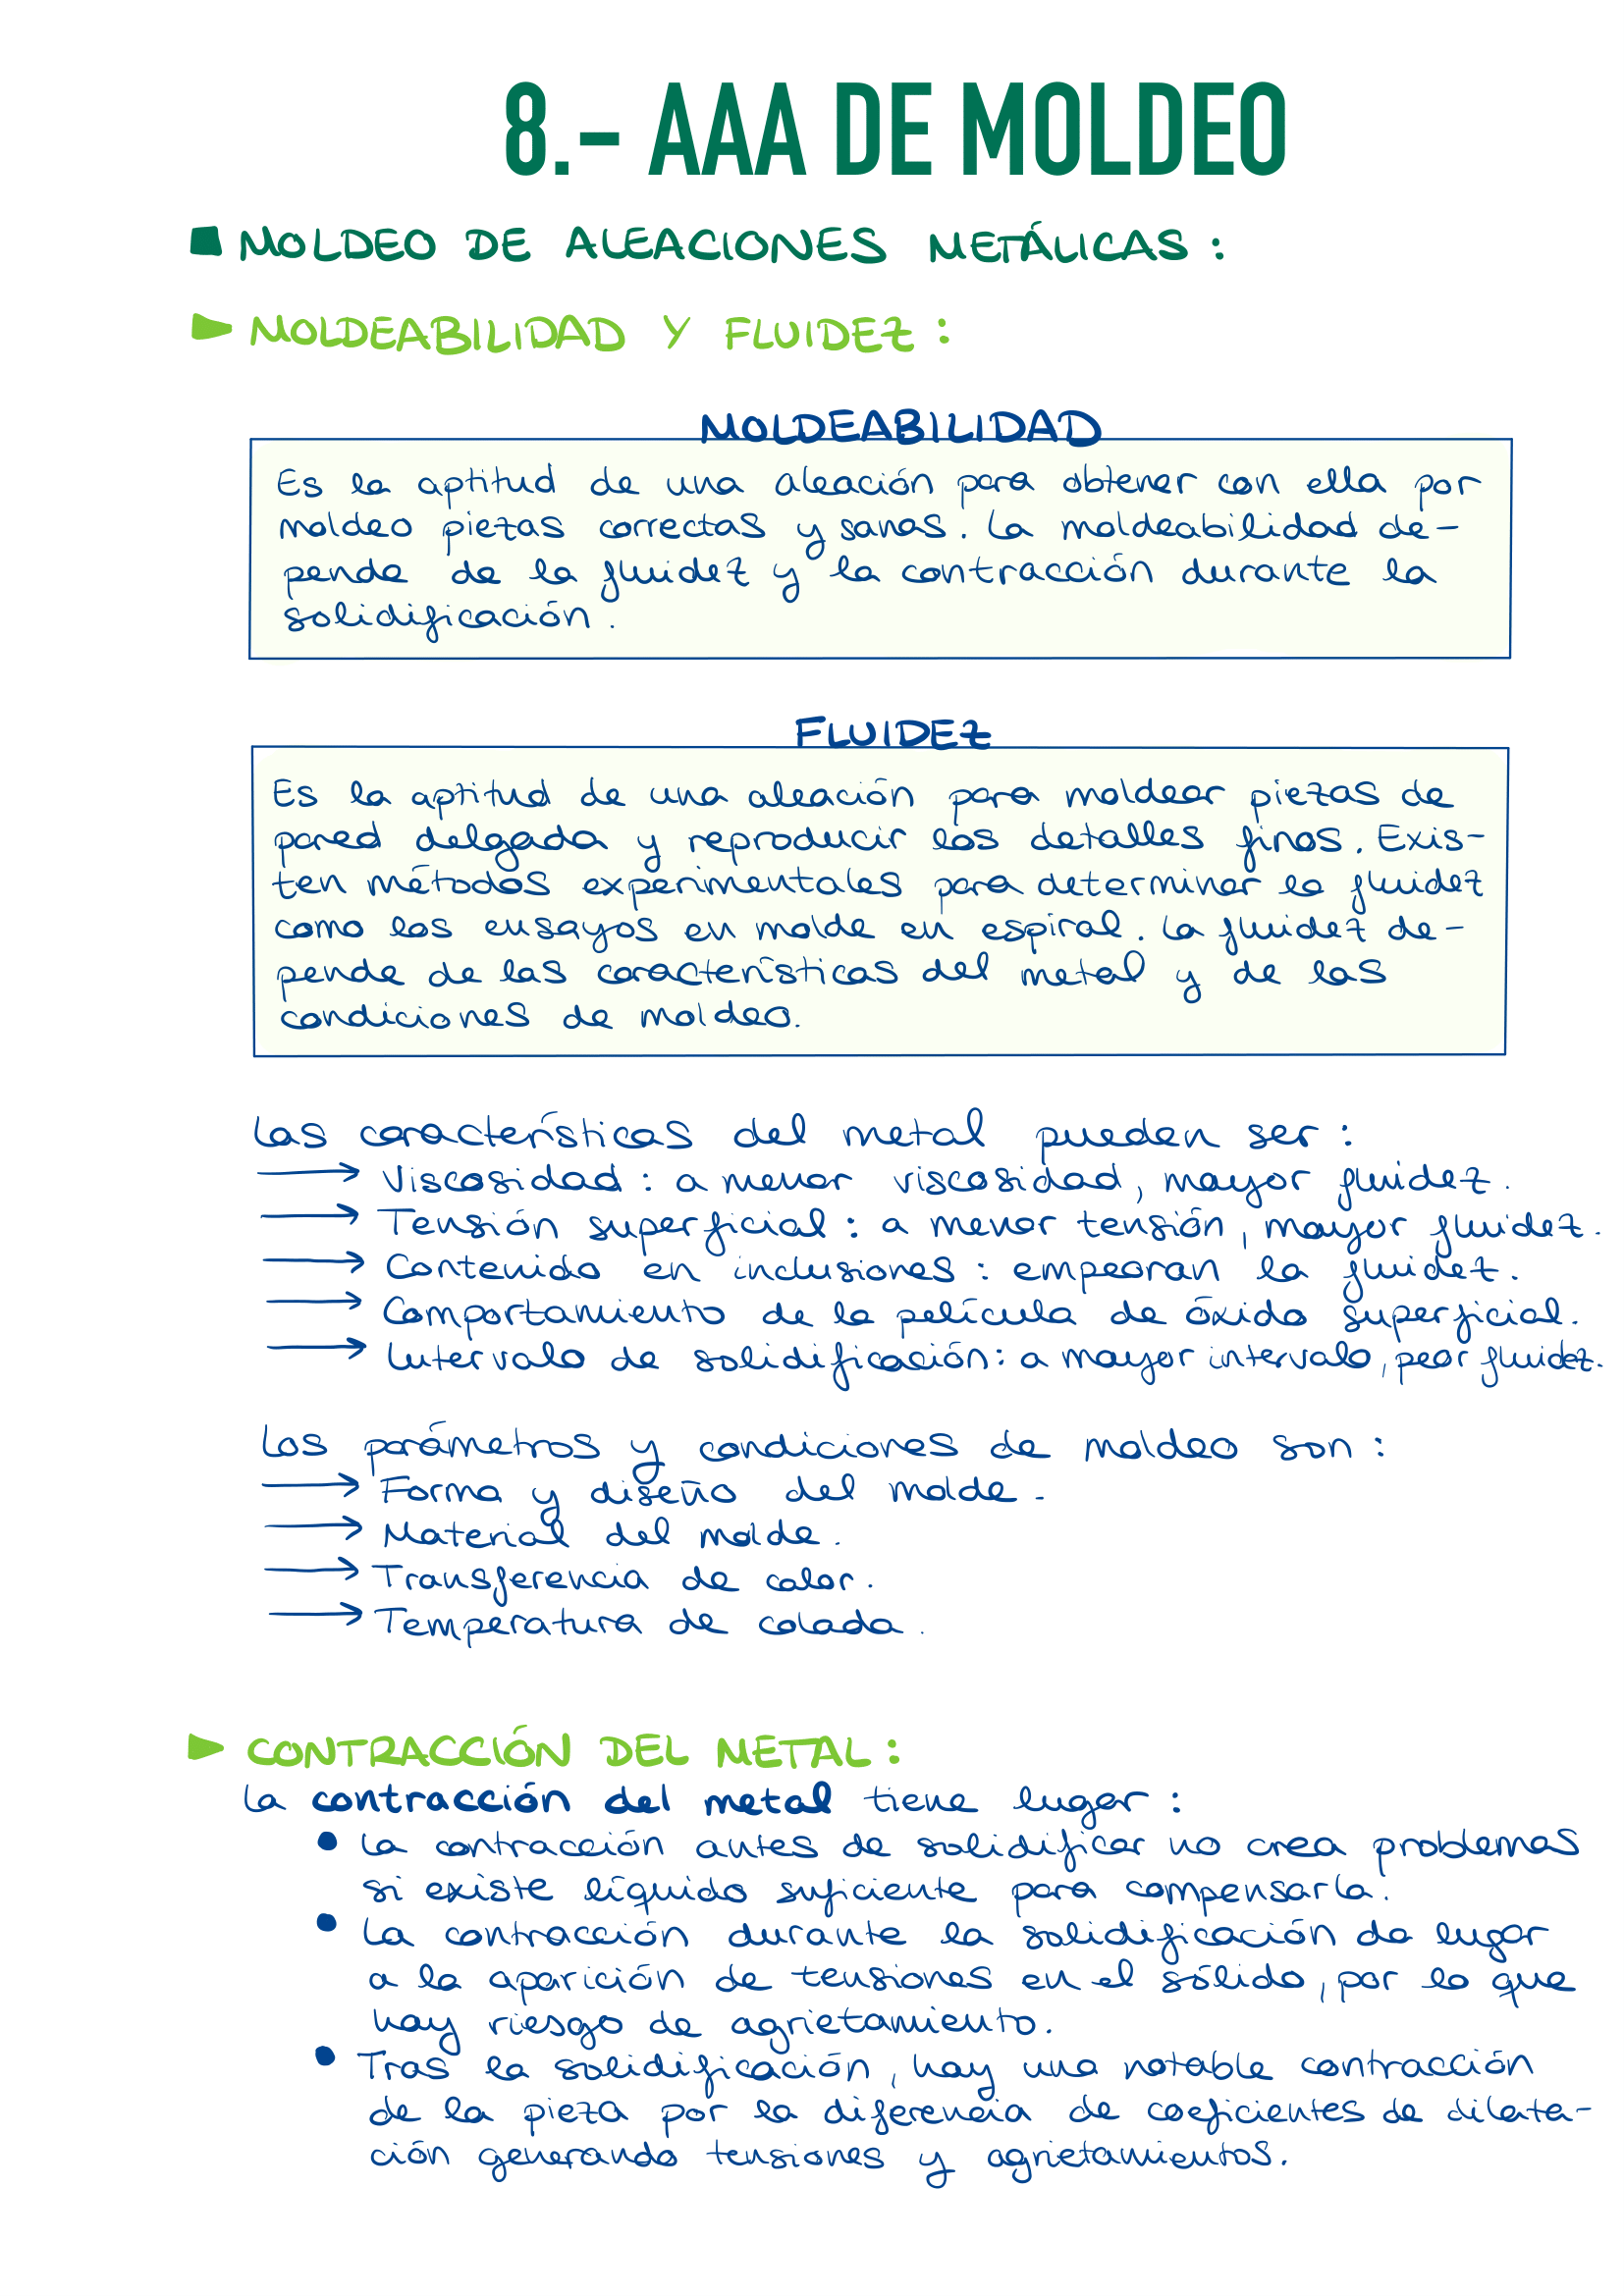 8.- AAA DE MOLDEO
MOLDEO DE ALEACIONES METÁLICAS:
MOLDEABILIDAD Y FLUIDEZ:
MOLDEABILIDAD
Es la aptitud de una aleación para obtener con ella por
moldeo piezas correctas y sanas. La moldeabilidad de-
pende de la fluidez y la contracción durante la
solidificación.
FLUIDEZ
Es la aptitud de una aleación para moldear piezas de
pared delgada y reproducir los detalles finos. Exis-
ten métodos experimentales para determinar la fluidez
como los ensayos en molde en espiral. La fluidez de-
pende de las características del metal y de las
condiciones de moldeo.
Las características del metal pueden ser:
→ Viscosidad: a menor viscosidad, mayor fluidez.
→ Tensión superficial: a menor tensión, mayor fluidez.
→ Contenido en inclusiones: empeoran la fluidez.
→ Comportamiento de la película de óxido superficial.
→ Intervalo de solidificación: a mayor intervalo, peor fluidez.
Los parámetros y condiciones de moldeo son:
→ Forma y diseño del molde.
→ Material del molde.
→ Transferencia de calor.
→ Temperatura de colada.
CONTRACCIÓN DEL METAL:
La contracción del metal tiene lugar:
● La contracción antes de solidificar no crea problemas
si existe líquido suficiente para compensarla.
● La contracción durante la solidificación da lugar
a la aparición de tensiones en el sólido, por lo que
hay riesgo de agrietamiento.
● Tras la solidificación, hay una notable contracción
de la pieza por la diferencia de coeficientes de dilata-
ción generando tensiones y agrietamientos.